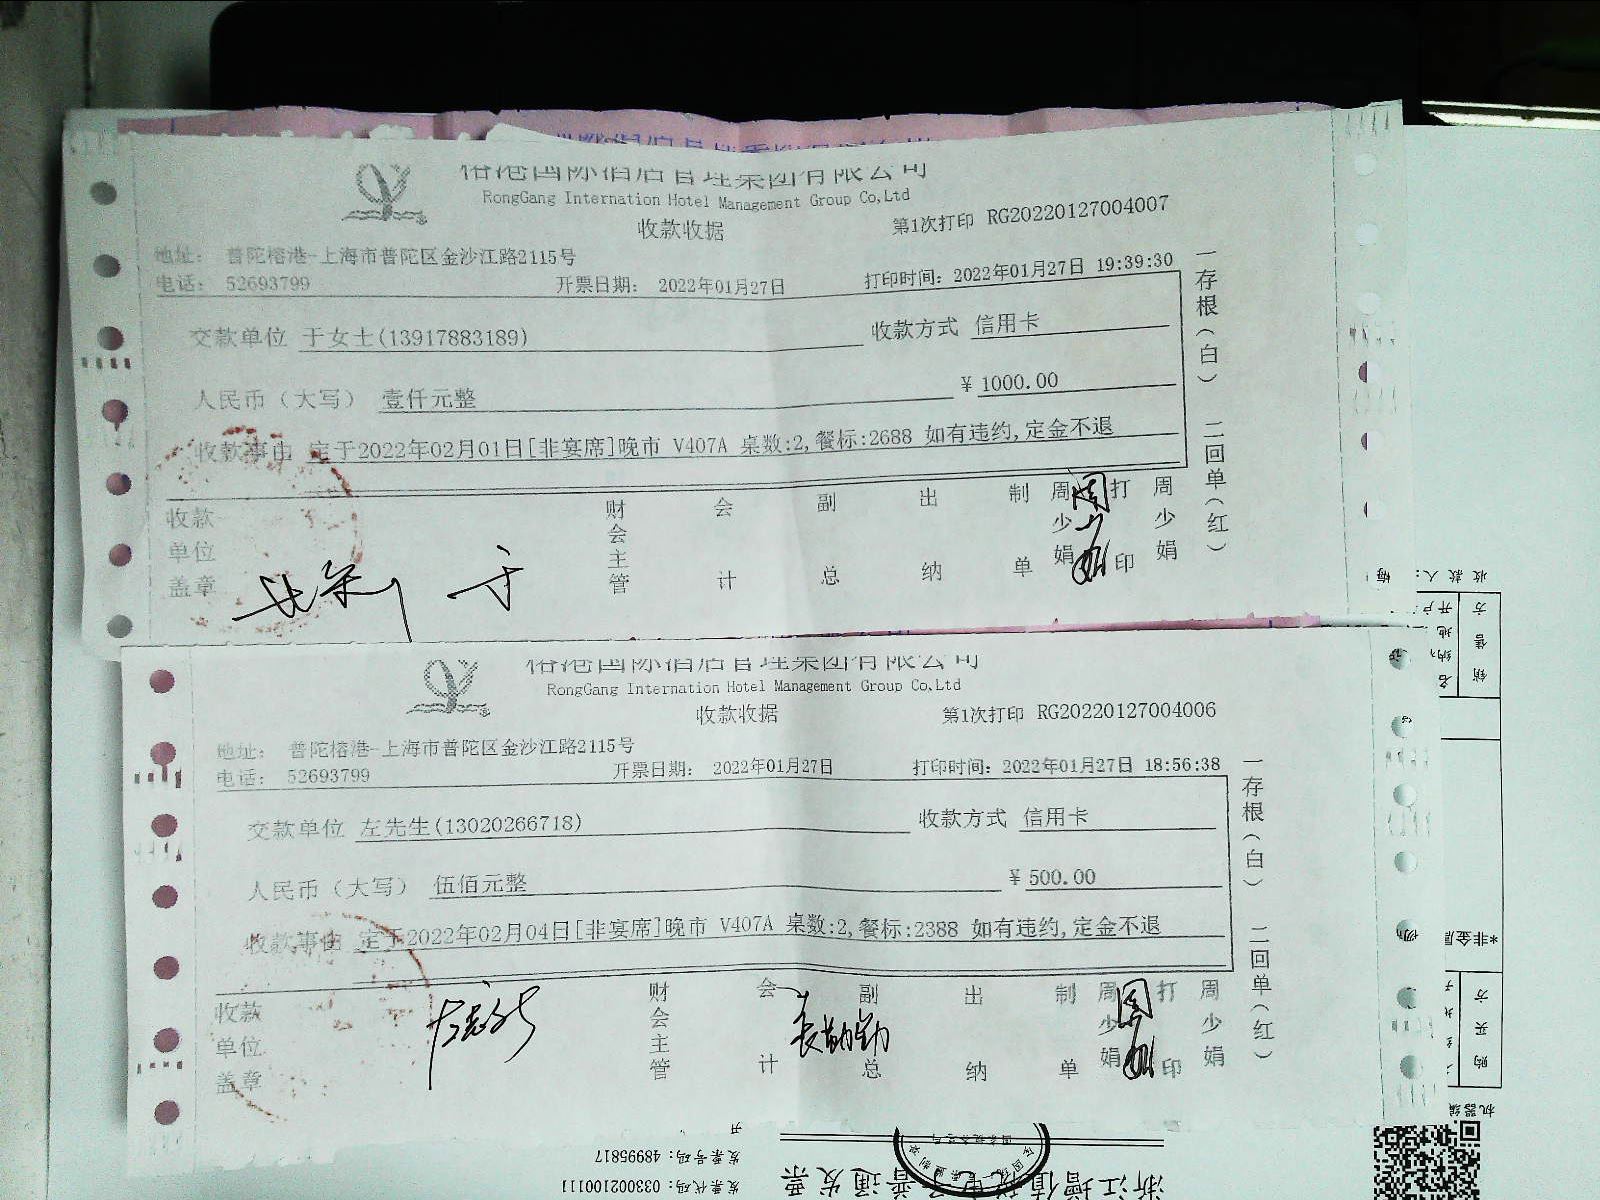 榕港国际酒店管理集团有限公司
RongGang Internation Hotel Management Group Co,Ltd
收款收据
第1次打印 RG20220127004007
地址： 普陀榕港-上海市普陀区金沙江路2115号
电话： 52693799 开票日期： 2022年01月27日 打印时间：2022年01月27日 19:39:30
交款单位 于女士(13917883189) 收款方式 信用卡
人民币（大写） 壹仟元整 ¥ 1000.00
收款事由 定于2022年02月01日[非宴席]晚市 V407A 桌数:2,餐标:2688 如有违约,定金不退
收款单位盖章 财会主管 会计 副总 出纳 制单 周少娟 打印 周少娟
一存根（白） 二回单（红）
于
榕港国际酒店管理集团有限公司
RongGang Internation Hotel Management Group Co,Ltd
收款收据
第1次打印 RG20220127004006
地址： 普陀榕港-上海市普陀区金沙江路2115号
电话： 52693799 开票日期： 2022年01月27日 打印时间：2022年01月27日 18:56:38
交款单位 左先生(13020266718) 收款方式 信用卡
人民币（大写） 伍佰元整 ¥ 500.00
收款事由 定于2022年02月04日[非宴席]晚市 V407A 桌数:2,餐标:2388 如有违约,定金不退
收款单位盖章 财会主管 会计 副总 出纳 制单 周少娟 打印 周少娟
一存根（白） 二回单（红）
收款人：
销售方
*非金属
购买方
机器编
浙江增值税电子普通发票
发票代码：033002100111
发票号码：48995817
开